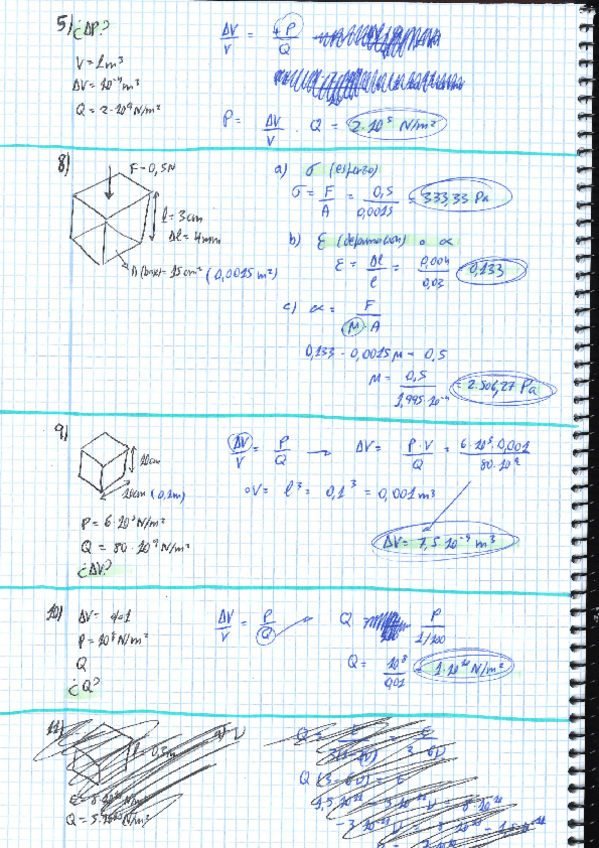 5) ¿ΔP?
V = 1 m³
ΔV = 10⁻⁴ m³
Q = 2·10⁹ N/m²
ΔV/V = P/Q
P = ΔV/V · Q = 2·10⁵ N/m²
8)
F = 0,5N
l = 3cm
Δl = 4mm
A (base) = 15cm² (0,0015 m²)
a) σ (esfuerzo)
σ = F/A = 0,5/0,0015 = 333,33 Pa
b) ε (deformación) o α
ε = Δl/l = 0,004/0,03 = 0,133
c) α = F/(M·A)
0,133 · 0,0015 M = 0,5
M = 0,5/1,995·10⁻⁴ = 2.506,27 Pa
9)
10cm
10cm (0,1m)
P = 6·10⁵ N/m²
Q = 80·10⁹ N/m²
¿ΔV?
ΔV/V = P/Q → ΔV = P·V/Q = 6·10⁵·0,001/80·10⁹
∘V = l³ = 0,1³ = 0,001 m³
ΔV = 7,5·10⁻⁹ m³
10)
P = 10⁸ N/m²
Q
¿Q?
ΔV/V = P/Q → Q P/1/100
Q = 10⁸/0,01 = 1·10¹⁰ N/m²
11)